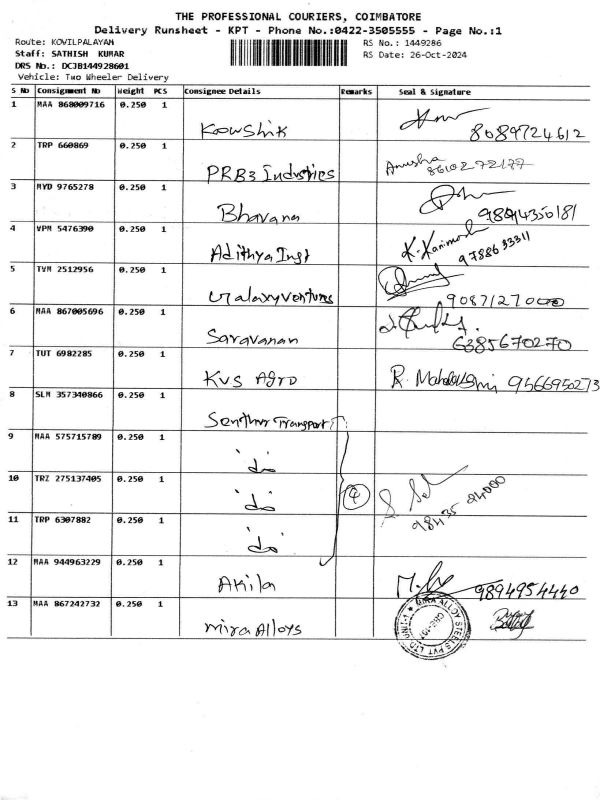 THE PROFESSIONAL COURIERS, COIMBATORE
Delivery Runsheet - KPT - Phone No.:0422-3505555 - Page No.:1
Route: KOVILPALAYAM RS No.: 1449286
Staff: SATHISH KUMAR RS Date: 26-Oct-2024
DRS No.: DCJB144928601
Vehicle: Two Wheeler Delivery
S No Consignment No Weight PCS Consignee Details Remarks Seal & Signature
1 MAA 868009716 0.250 1 Kowshik 8089724612
2 TRP 660869 0.250 1 PRB3 Industries Anusha
3 MYD 9765278 0.250 1 Bhavana
4 VPM 5476390 0.250 1 Adithya Inst K. Kanimozhi
5 TVM 2512956 0.250 1 Galaxy Ventures 9087127000
6 MAA 867005696 0.250 1 Saravanan 6385670270
7 TUT 6982285 0.250 1 KVS Agro 9566950273
8 SLM 357340866 0.250 1 Senthur Transport
9 MAA 575715789 0.250 1 'do'
10 TRZ 275137405 0.250 1 'do' 4
11 TRP 6307882 0.250 1 'do' 98435 94000
12 MAA 944963229 0.250 1 Akila 9894954440
13 MAA 867242732 0.250 1 Mira Alloys
MIRA ALLOY STEELS PVT LTD